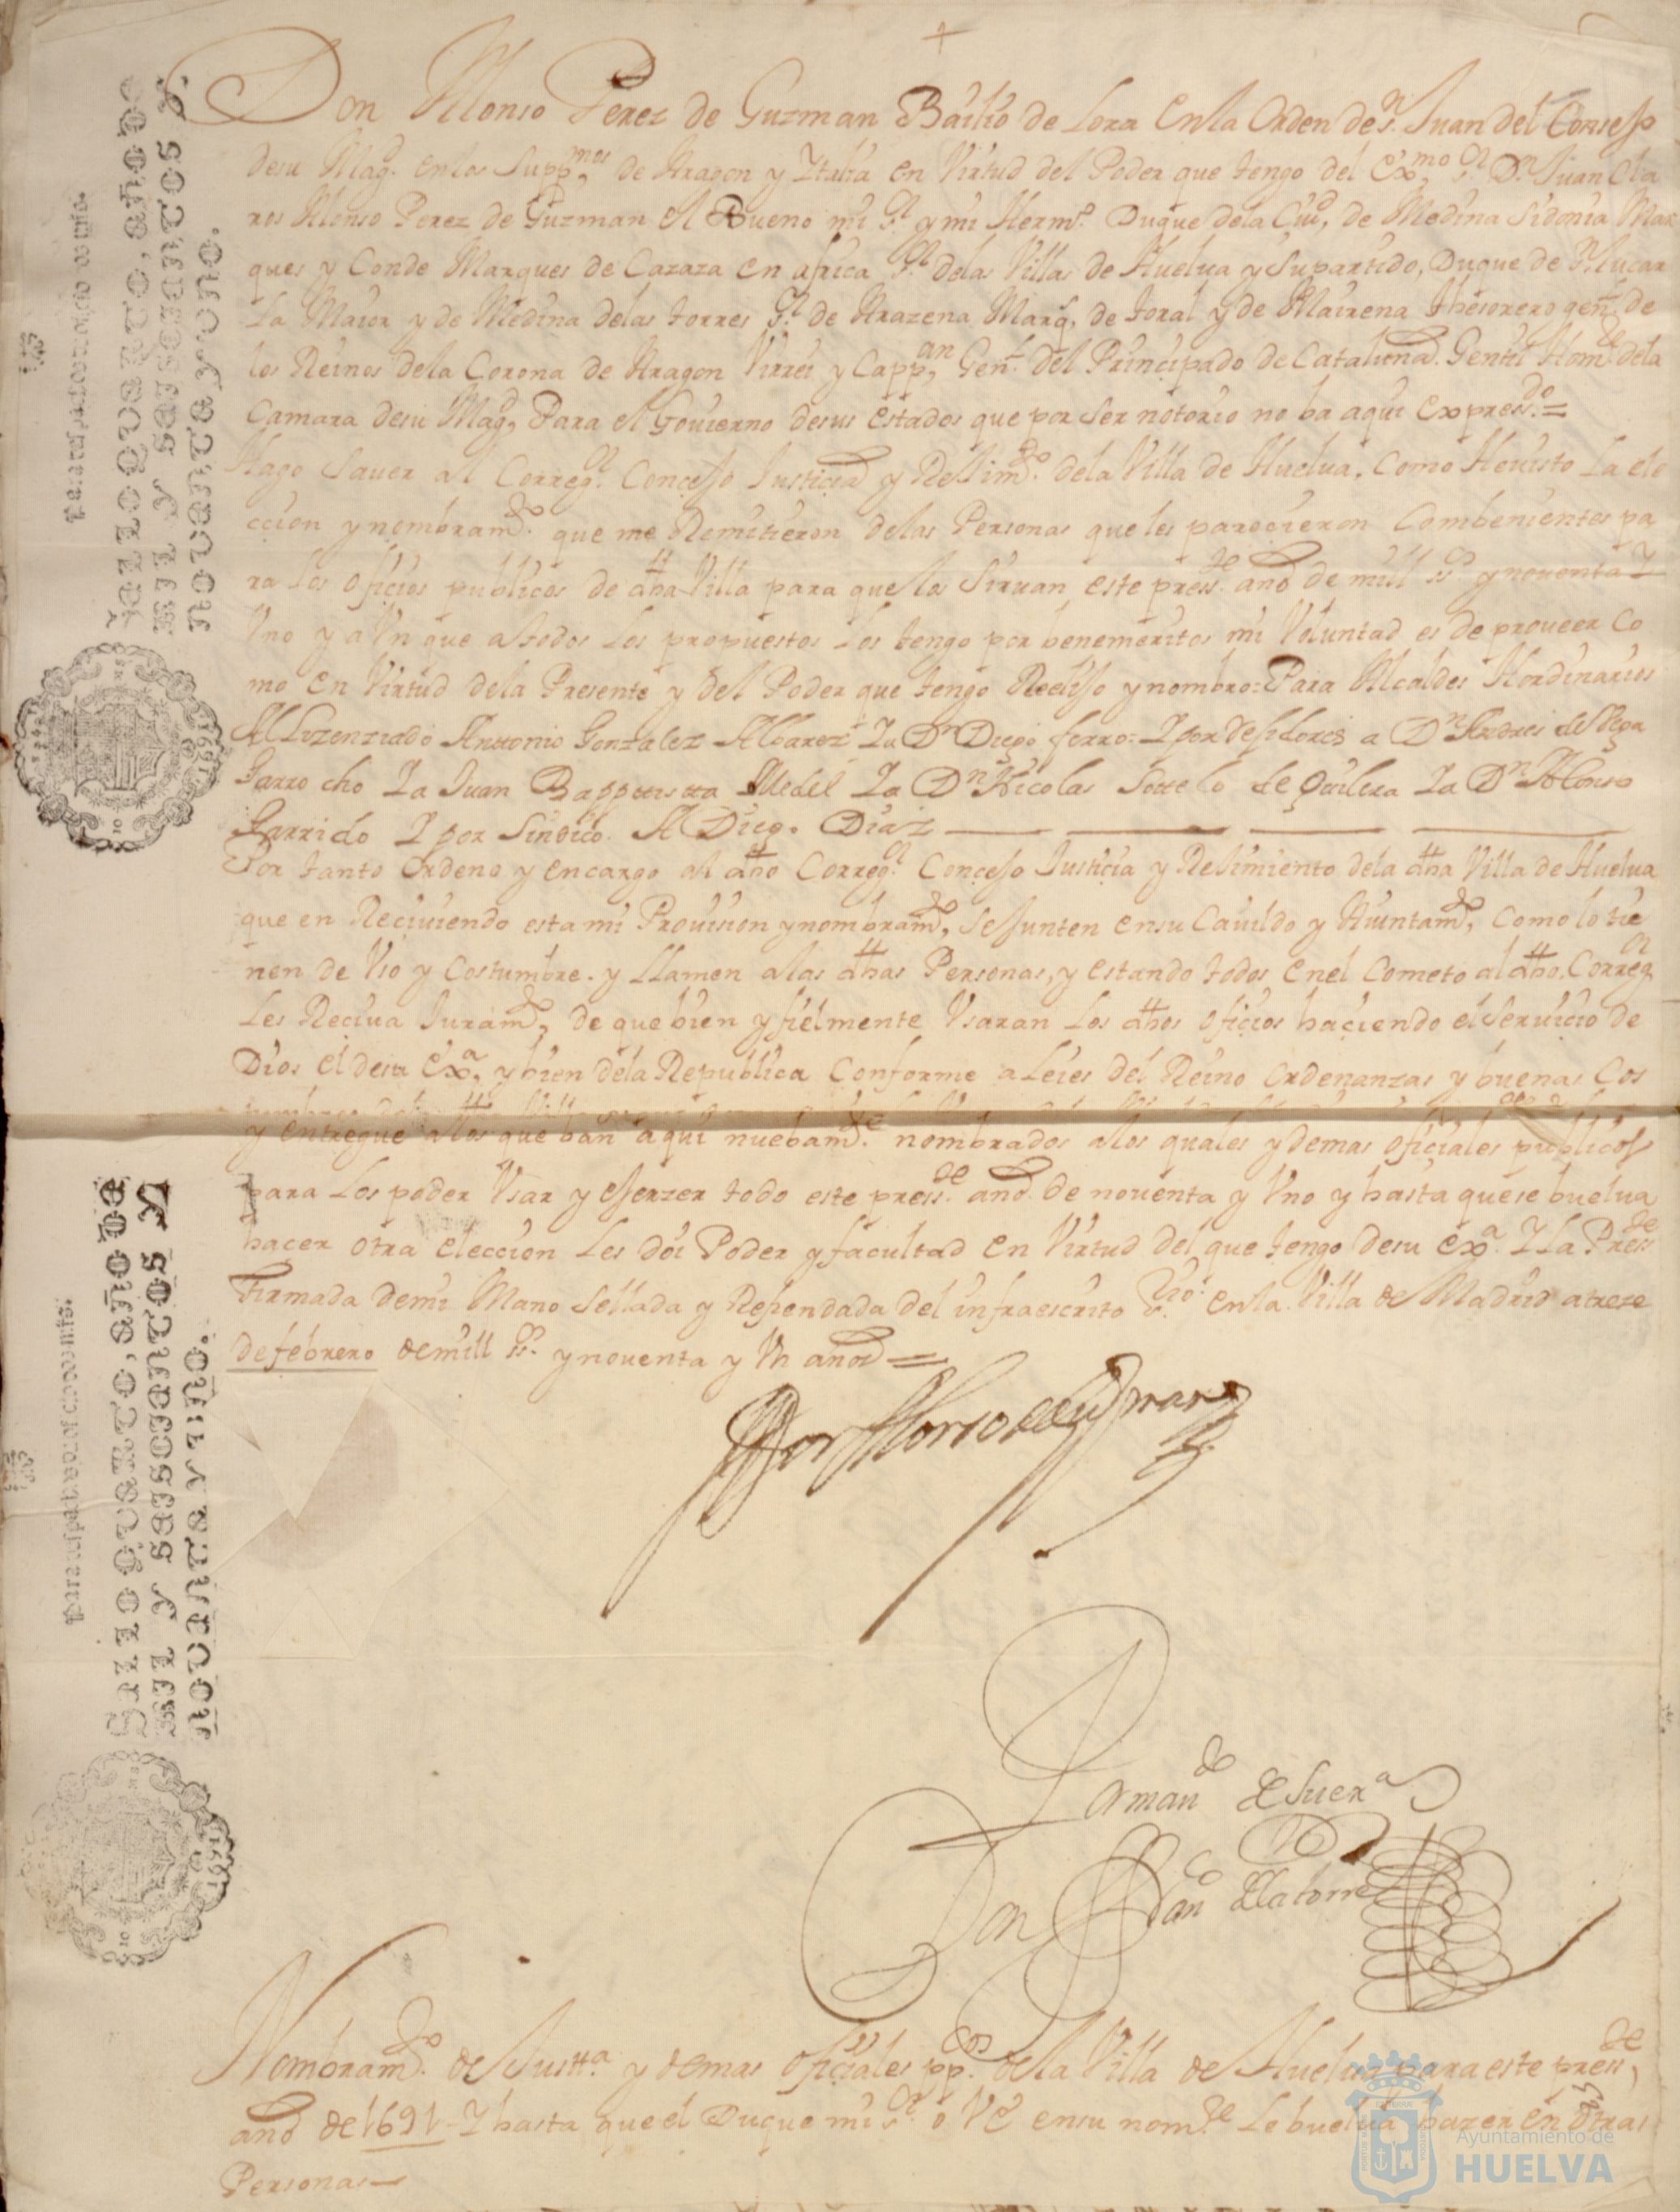 Don Alonso Perez de Guzman Bailio de Lora en la Orden de Sn. Juan del Consejo
de su Magd. en los Suppmos. de Aragon y Italia en Virtud del Poder que tengo del exmo. Sr. Dn. Juan Cla
ros Alonso Perez de Guzman el Bueno mi Sr. y mi Hermo. Duque de la Ciud. de Medina Sidonia Mar
ques y Conde Marques de Cazaza en africa Sr. de las Villas de Huelua y su partido, Duque de Sn. Lucar
La Maior y de Medina de las torres Sr. de Arazena Marq. de toral y de Mairena thesorero genl. de
los Reinos de la Corona de Aragon Virrei y Cappan. Genl. del Principado de Cataluna. Gentil Home. de la
Camara de su Magd. Para el Gouierno de sus estados que por ser notorio no ba aqui expresdo. =
Hago Sauer al Corregor. Concejo Justicia y Rejimto. de la Villa de Huelua. Como He uisto La ele
ccion y nombramto. que me Remitieron de las Personas que les parecieron Combenientes pa
ra los oficios publicos de dha Villa para que los Siruan este presste. año de mill sos. y nouenta Y
Vno y a Vn que a todos los propuestos los tengo por benemeritos mi Voluntad es de proueer Co
mo en Virtud de la Presente y del Poder que tengo Elijo y nombro: Para Alcaldes Hordinarios
Al Lizenziado Anttonio Gonzalez Albarez Ya Dn Diego ferro: Y por Rejidores a Dn Andres de Vega
Garrocho Ya Juan Bappttistta Medel Ya Dn Nicolas Sottelo de Quilera Ya Dn Alonso
Garrido Y por Sindico. A Diego Diaz
Por tanto ordeno y encargo al dho Corregor. Concejo Justicia y Rejimiento de la dha Villa de Huelua
que en Reciuiendo esta mi Prouision y nombramto, Se Junten en su Cauildo y Aiuntamto, Como lo tie
nen de Vso y Costumbre. y Llamen a las dhas Personas, y estando todos en el Cometo al dho. Corregor
Les Reciua Juramto, de que bien y fielmente Vsaran los dhos oficios haciendo el Seruicio de
Dios el de su Exa. y bien de la Republica Conforme a Leies del Reino Ordenanzas y buenas Cos
y entregue a los que ban aqui nuebamte. nombrados a los quales y demas oficiales publicos
para Los poder Vsar y ejerzer todo este presste. año. de nouenta y Vno y hasta que se buelua
hacer otra eleccion Les doi Poder y facultad en Virtud del que tengo de su exa. Y La Presste
Firmada de mi Mano Sellada y Refrendada del infraescrito ssrio. en la Villa de Madrid a trece
de febrero de mill ss. y nouenta y Vn años =
Don Alonso de Guzman
Por mando. de Su exa.
Don Franco. de la torre
Nombramto. de Justta. y demas oficiales ppcos. de la Villa de Huelua para este presste,
año de 1691 - Y hasta que el Duque mi Sr. o VE en su nome. Lo buelua hazer en otras
Personas
Sello quarto, diez m
a
año de mil y seiscientos y
nouenta y vno.
Para despachos de oficio dos mrs.
1691